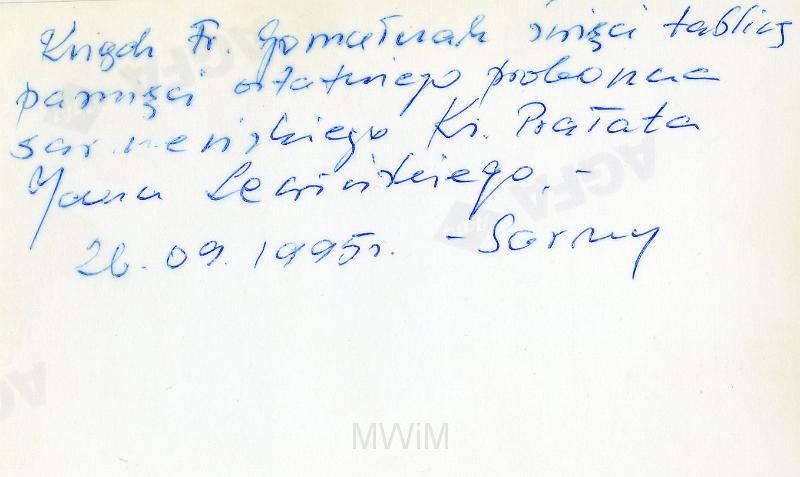 Ksiądz Fr. święci tablicę
pamięci ostatniego proboszcza
sarneńskiego Ks. Prałata
Jana Lewińskiego. -
26.09.1995r. - Sarny
AGFA
MWiM